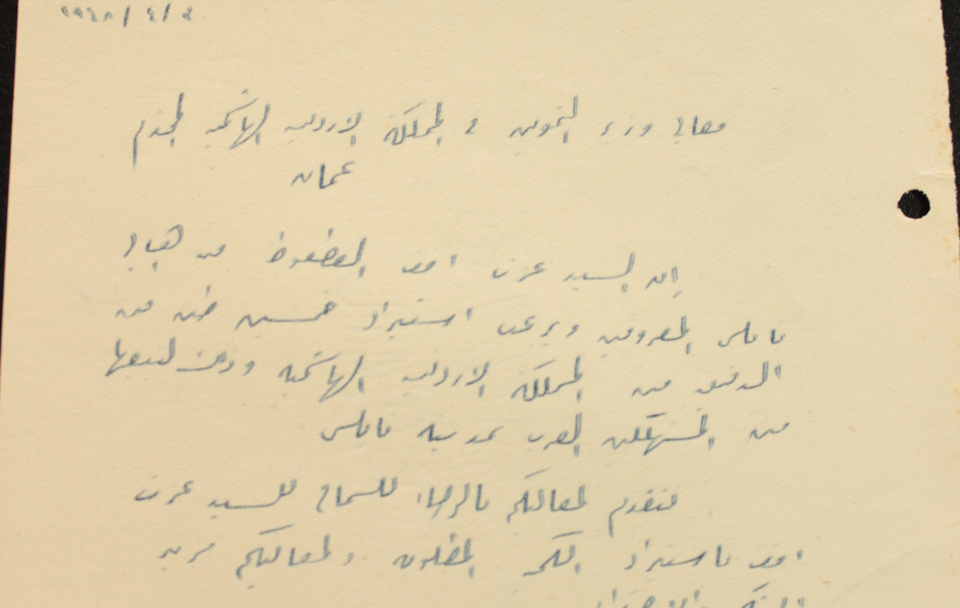 ١٩٤٨/٤/٢
معالي وزير التموين في المملكة الاردنية الهاشمية المفخم
عمان
إن السيد عزت افندي من اهالي
نابلس المعروفين ويرغب استيراد خمسين طن من
الدقيق من المملكة الاردنية الهاشمية وذلك لبيعها
من المستهلكين العرب بمدينة نابلس
فنتقدم لمعاليكم بالرجاء للسماح للسيد عزت
افندي باستيراد الكمية المطلوبة ولمعاليكم مزيد